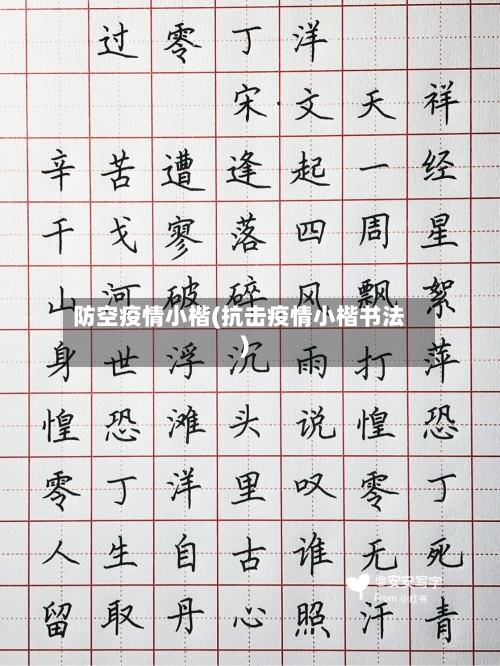 过零丁洋
宋·文天祥
辛苦遭逢起一经
干戈寥落四周星
山河破碎风飘絮
防空疫情小楷(抗击疫情小楷书法
)
身世浮沉雨打萍
惶恐滩头说惶恐
零丁洋里叹零丁
人生自古谁无死
@安安写字
From 小红书
留取丹心照汗青